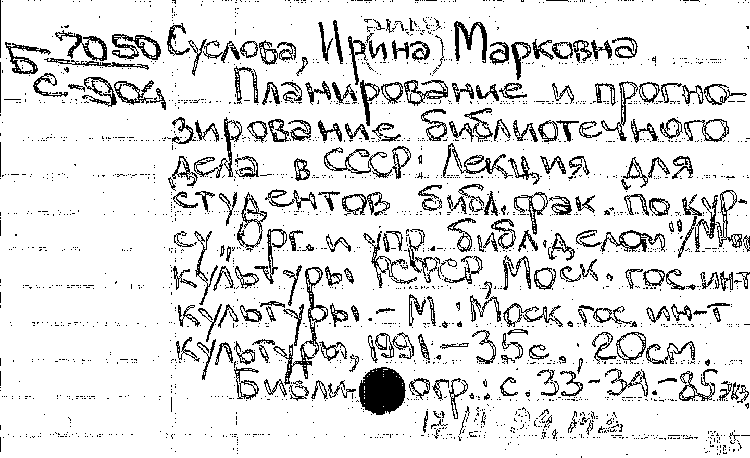 Б 7050
С-904
Суслова, Ирина Марковна
Планирование и прогно-
зирование библиотечного
дела в СССР: Лекция для
студентов библ. фак. по кур-
су „Орг. и упр. библ. делом"/М-во
культуры РСФСР, Моск. гос. ин-т
культуры. - М.: Моск. гос. ин-т
культуры, 1991. - 35 с.; 20 см.
Библиогр.: с. 33-34. - 85 экз.